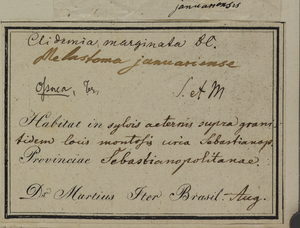 januariensis
Clidemia marginata DC.
Melastoma januariense
S. et M
Habitat in sylvis aeternis supra grani
tidem locis montosis circa Sebastianop.
Provinciae Sebastianopolitanae.
Dr Martius Iter Brasil. Aug.